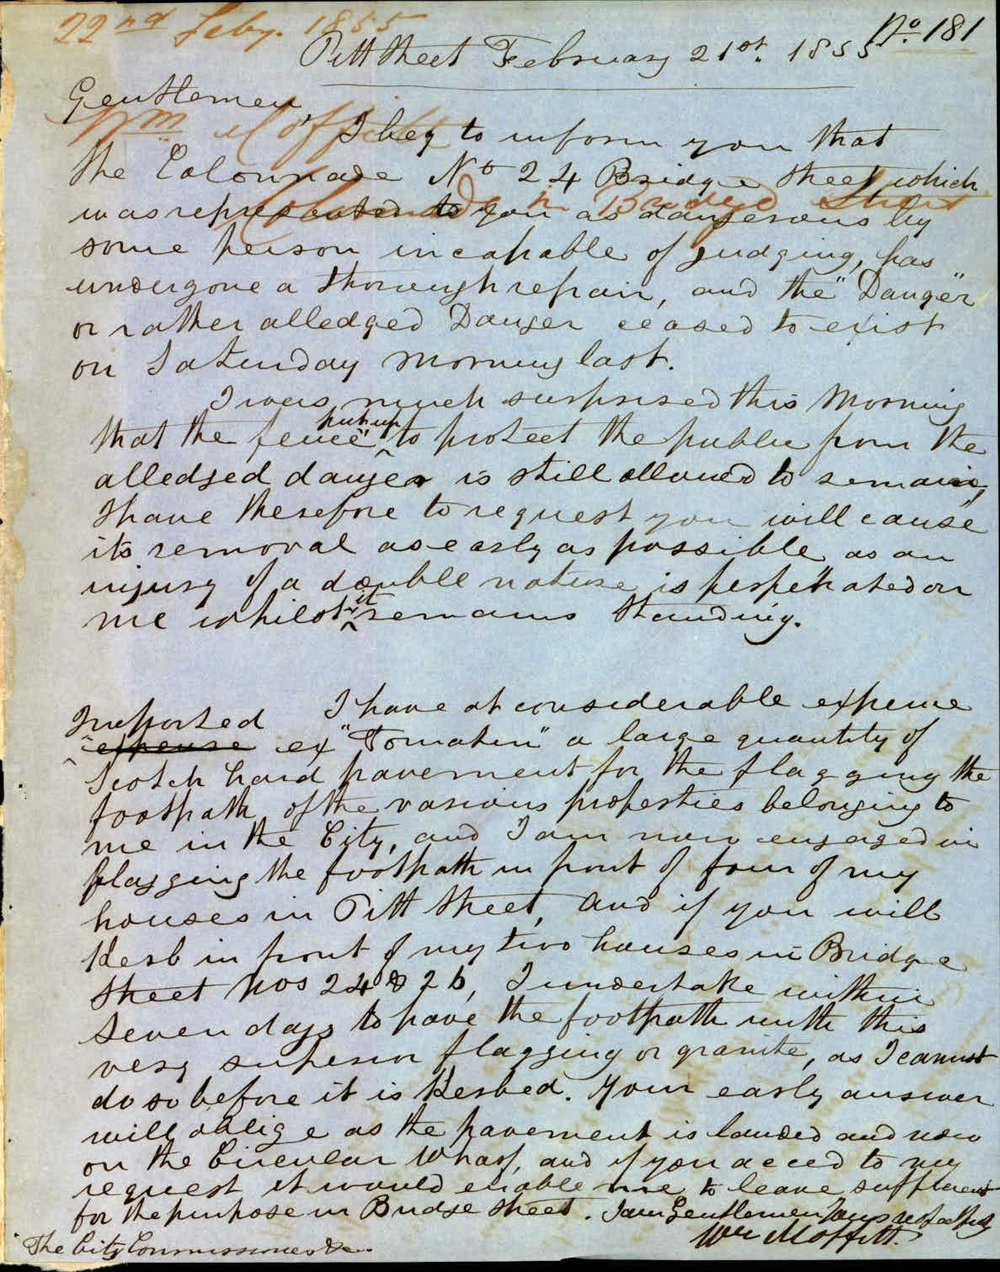 22nd Feby. 1855
No. 181
Pitt Street February 21st. 1855
Gentlemen
Wm Moffitt
I beg to inform you that
the Colonnade No 24 Bridge Street which
Colonnade in Bridge Street
was represented to you as dangerous by
some person incapable of judging, has
undergone a thorough repair, and the "Danger"
or rather alledged Danger ceased to exist
on Saturday morning last.
I was much surprised this morning
that the fence put up to protect the public from the
alledged danger is still allowed to remain,
I have therefore to request you will cause
its removal as early as possible as an
injury of a double nature is perpetrated on
me whilst it remains standing.
I have at considerable expense
Imported expense ex "Tomatin" a large quantity of
Scotch hard pavement for the flagging the
footpath of the various properties belonging to
me in the City, and I am now engaged in
flagging the footpath in front of four of my
houses in Pitt Street, and if you will
Kerb in front of my two houses in Bridge
Street Nos 24 & 26, I undertake within
seven days to pave the footpath with this
very superior flagging or granite, as I cannot
do so before it is Kerbed. Your early answer
will oblige as the pavement is landed and now
on the Circular Wharf, and if you acceed to my
request it would enable me to leave sufficient
for the purpose in Bridge Street. I am Gentlemen Yours respectfully
Wm Moffitt.
The City Commissioners &c.